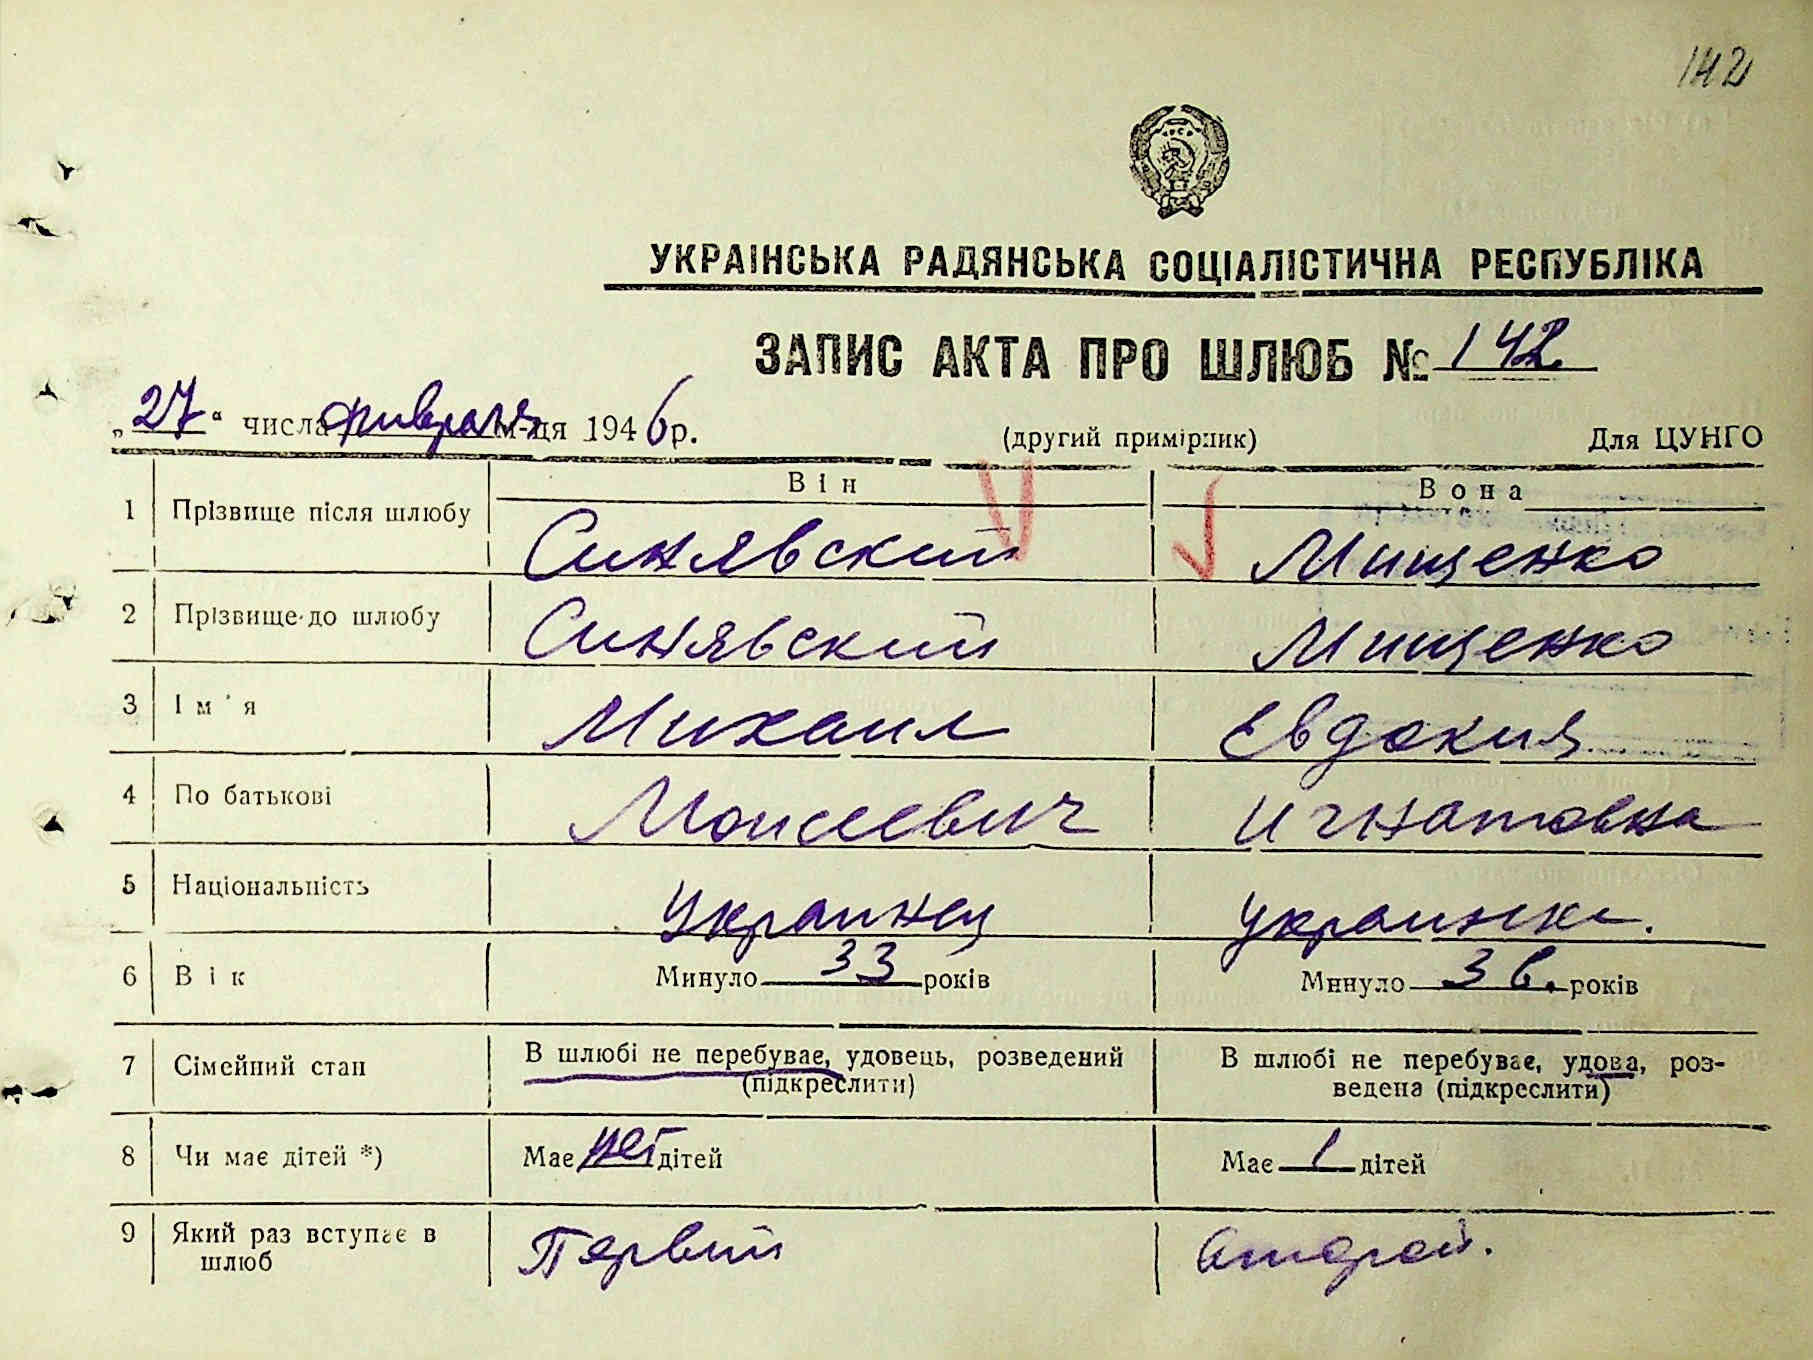 142
УКРАІНСЬКА РАДЯНСЬКА СОЦІАЛІСТИЧНА РЕСПУБЛІКА
ЗАПИС АКТА ПРО ШЛЮБ № 142
„27“ числа февраля м-ця 1946 р. (другий примірник) Для ЦУНГО
Він Вона
1 Прізвище після шлюбу Синявский Мищенко
2 Прізвище до шлюбу Синявский Мищенко
3 Ім'я Михаил Евдокия
4 По батькові Моисеевич Игнатовна
5 Національність Украинец украинка.
6 Вік Минуло 33 років Минуло 36. років
7 Сімейний стан В шлюбі не перебуває, удовець, розведений В шлюбі не перебуває, удова, роз-
(підкреслити) ведена (підкреслити)
8 Чи має дітей *) Має нет дітей Має 1 дітей
9 Який раз вступає в Первый второй.
шлюб